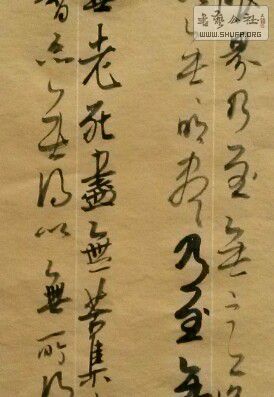 眼界乃至無意識
無明盡乃至無
無老死盡無苦集
智亦無得以無所得
書藝公社